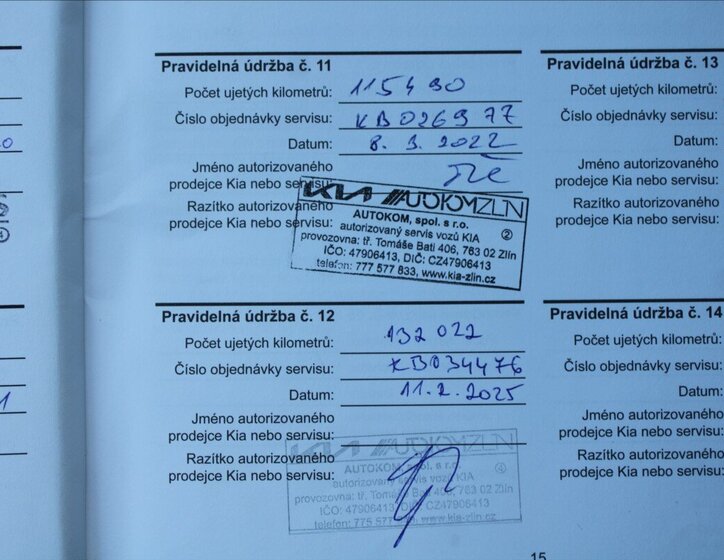 Pravidelná údržba č. 11
Počet ujetých kilometrů: 115490
Číslo objednávky servisu: KB026977
Datum: 8. 9. 2022
Jméno autorizovaného
prodejce Kia nebo servisu:
Razítko autorizovaného
prodejce Kia nebo servisu:
KIA AUTOKOMZLÍN
AUTOKOM, spol. s r.o.
autorizovaný servis vozů KIA ②
provozovna: tř. Tomáše Bati 406, 763 02 Zlín
IČO: 47906413, DIČ: CZ47906413
telefon: 777 577 833, www.kia-zlin.cz
Pravidelná údržba č. 12
Počet ujetých kilometrů: 132 022
Číslo objednávky servisu: KB034476
Datum: 11.2.2025
Jméno autorizovaného
prodejce Kia nebo servisu:
Razítko autorizovaného
prodejce Kia nebo servisu:
KIA AUTOKOMZLÍN
AUTOKOM, spol. s r.o. ④
autorizovaný servis vozů KIA
provozovna: tř. Tomáše Bati 406, 763 02 Zlín
IČO: 47906413, DIČ: CZ47906413
www.kia-zlin.cz
Pravidelná údržba č. 13
Počet ujetých kilometrů:
Číslo objednávky servisu:
Datum:
Jméno autorizovaného
prodejce Kia nebo servisu:
Razítko autorizovaného
prodejce Kia nebo servisu:
Pravidelná údržba č. 14
Počet ujetých kilometrů:
Číslo objednávky servisu:
Datum:
Jméno autorizovaného
prodejce Kia nebo servisu:
Razítko autorizovaného
prodejce Kia nebo servisu:
15